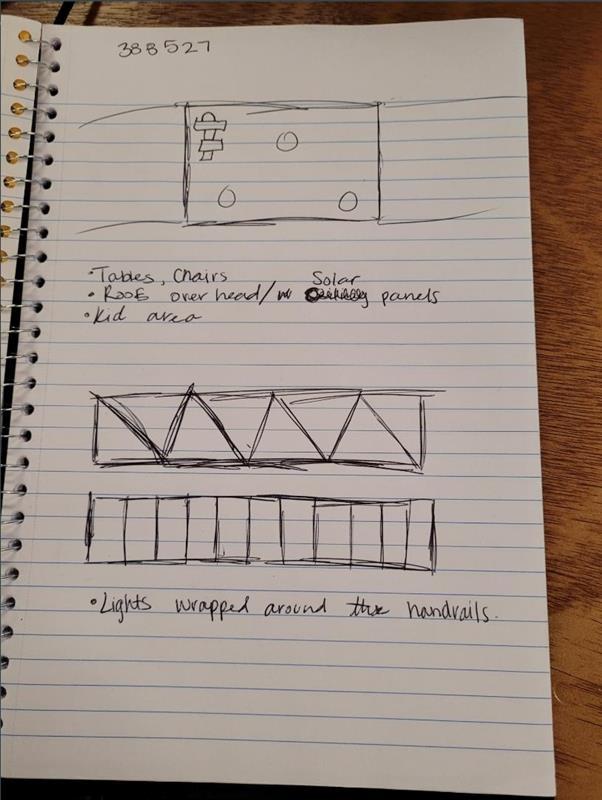 388527
•Tables, Chairs
Solar
•Roof over head/w panels
•Kid area
•Lights wrapped around the handrails.